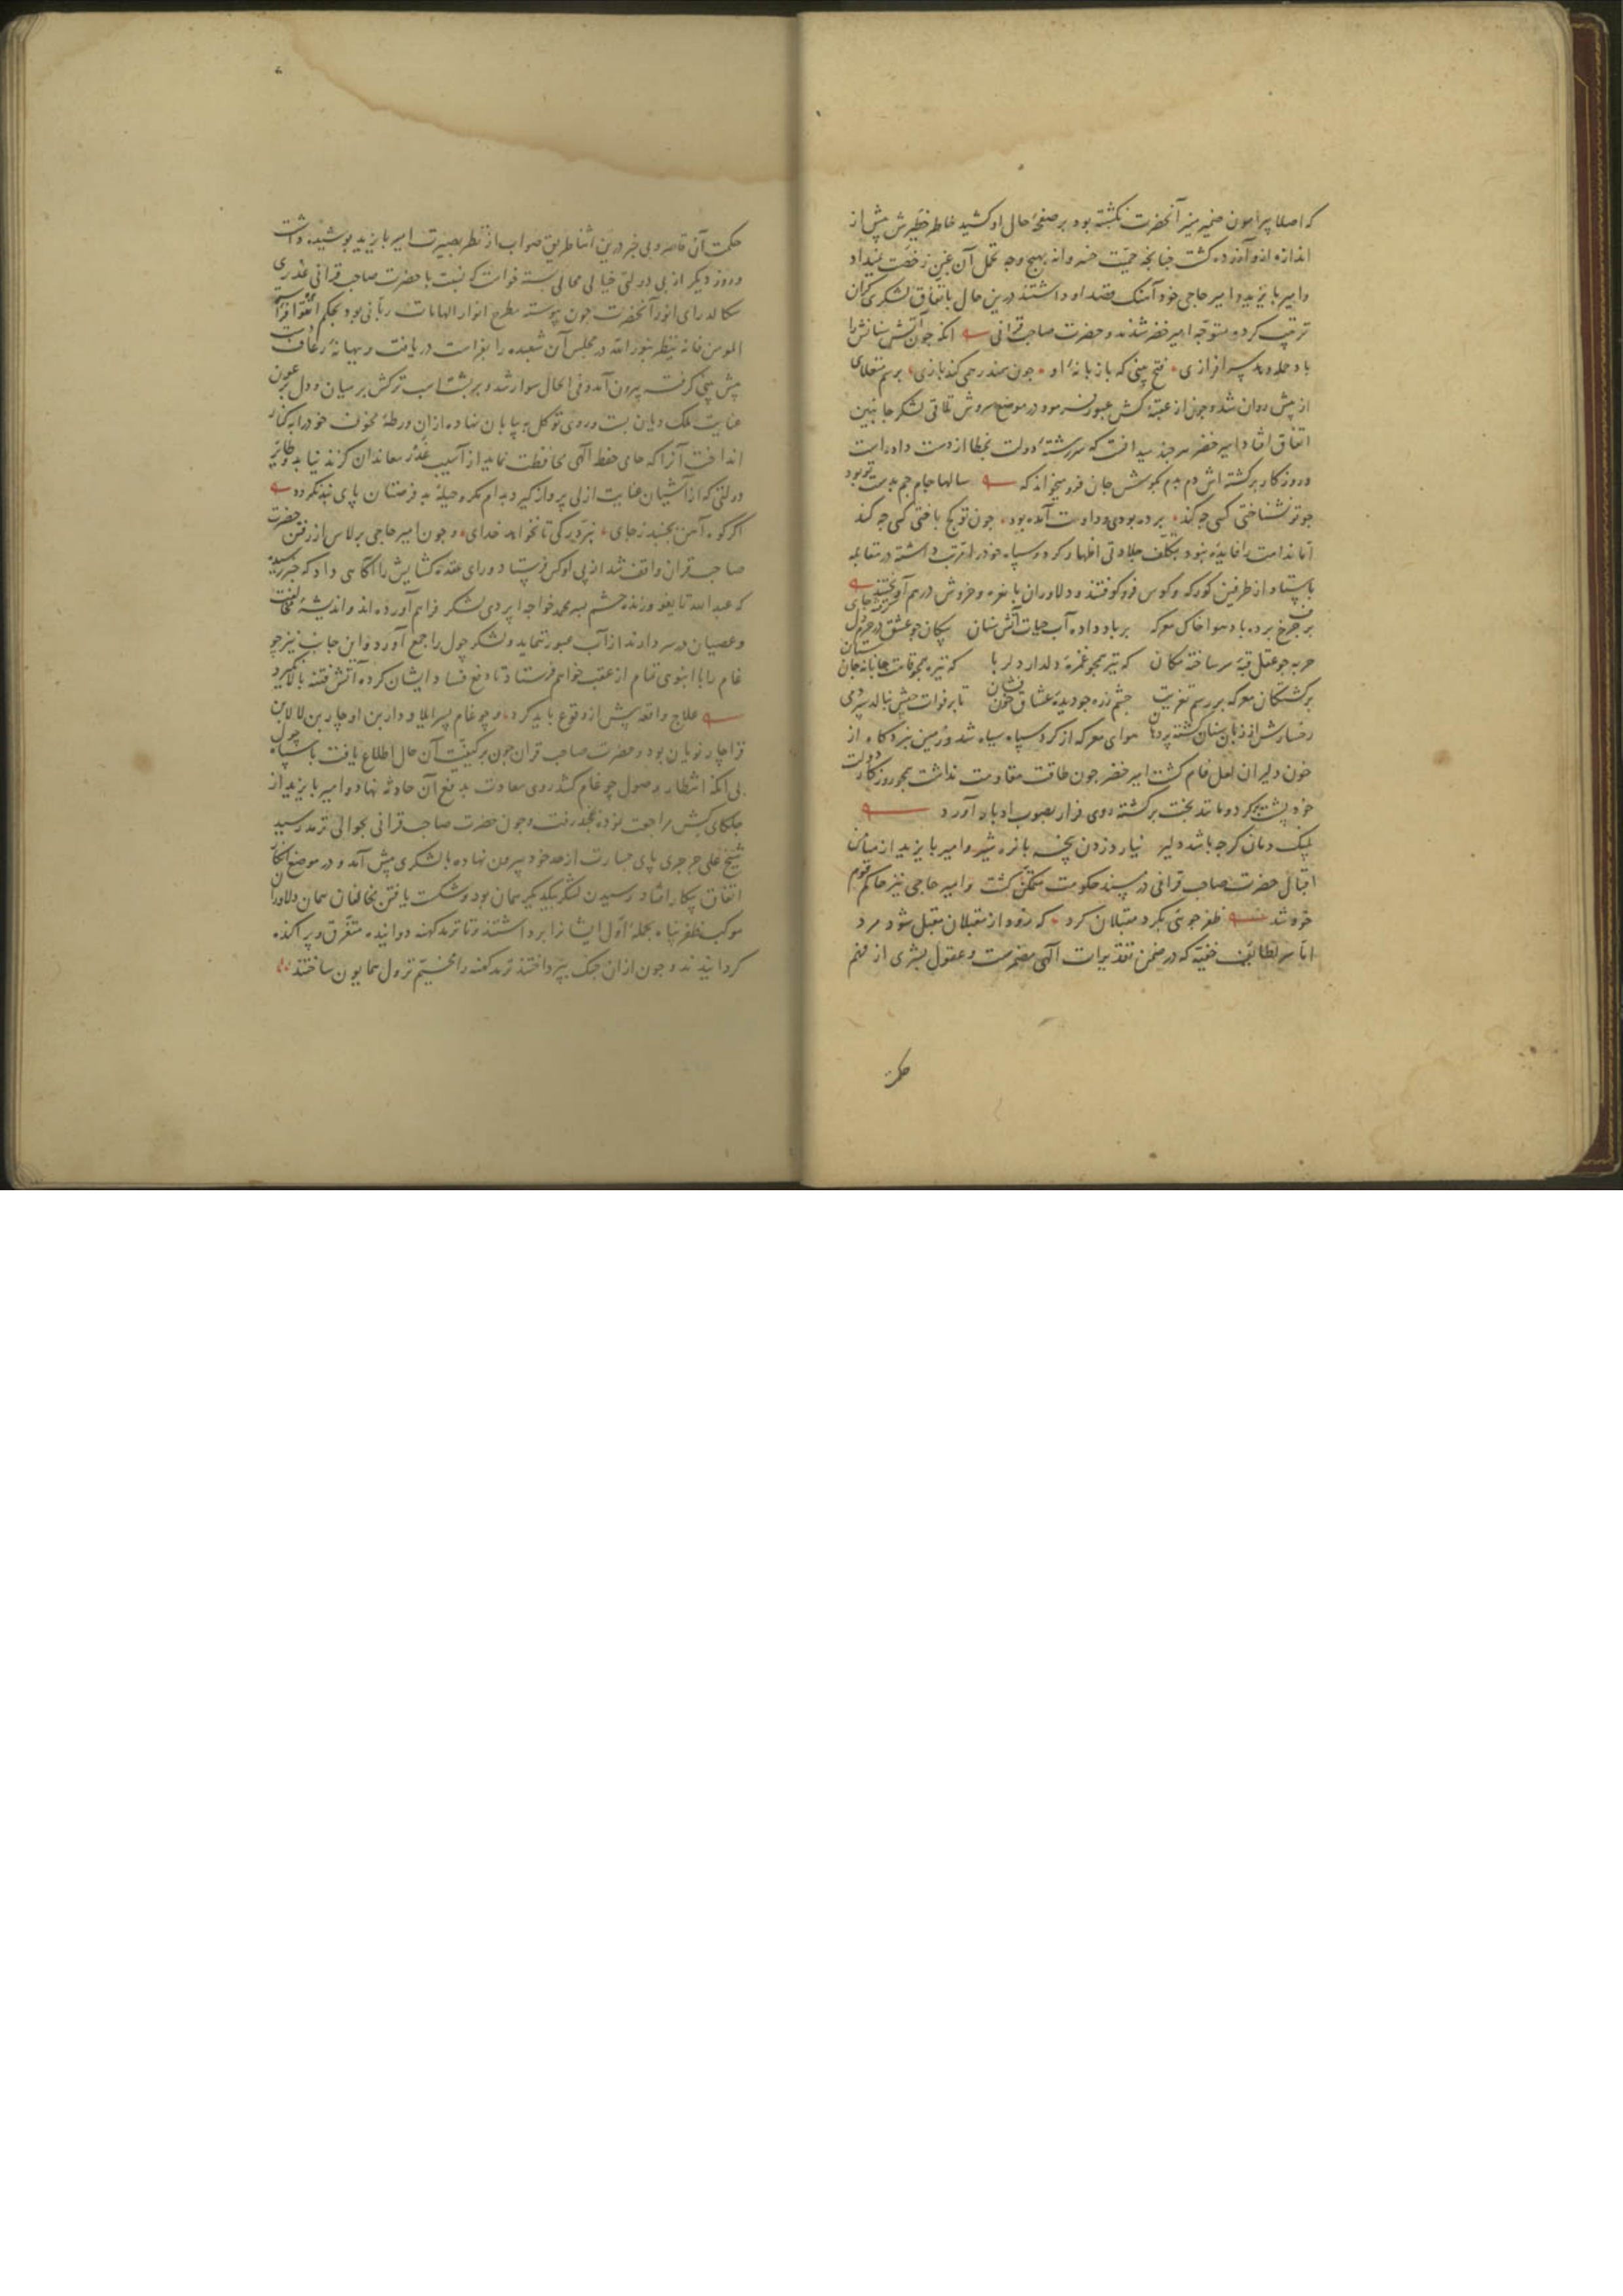 که اصلا پیرامون ضمیر منیر آنحضرت نگشته بود بر صفحهٔ حال او کشید خاطر خطیرش پیش از
اندازه ازو آزرده گشت چنانچه حمیّت خسروانه بهیچ وجه تحمل آن غبن رخصت نمیداد
وامیر بایزید وامیر حاجی خود آهنک قصد او داشتند درین حال باتفاق لشکری گران
ترتیب کرده متوجّه امیر خضر شدند و حضرت صاحب قرانی انکه چون آتش سنانش را
باد حمله دهد سرافرازی فتح بینی که با زبانهٔ او چون سمندر همی کند بازی برسم منغلای
از پیش روان شد و چون از عقبهٔ کش عبور فرمود در موضع سروش تلاقی لشکر جانبین
اتفاق افتاد امیر خضر هر چند میدانست که سررشتهٔ دولت بخطا از دست داده است
و روزکار برکشته اش دم بدم بکوش جان فرو میخواند که سالها جام جم بدست تو بود
چو تو نشناختی کسی چه کند بر در بودی و داوت آمده بود چون تو کج باختی کسی چه کند
اما ندامت را فایده نبود بتکلّف جلادتی اظهار کرد و سپاه خود را مرتب داشته در مقابله
بایستاد و از طرفین کورکه و کوس فرو کوفتند و دلاوران با نعره و خروش درهم آویختند
بر چرخ برده باد هوا خاک معرکه بر باد داده آب حیات آتش سنان پیکان چو عشق در حرم دل گرفته جای
حربه چو عقل قبّهٔ سر ساخته مکان که تیر همچو غمزهٔ دلدار دلربا که نیزه همچو قامت جانانه جان ستان
بر کشتکان معرکه بر رسم تعزیت چشم زره چو دیدهٔ عشاق خون فشان تا بر فوات جیش بنالد سر دمی
رخسارش از زبان سنان کشته پردهان هوای معرکه از کرد سپاه سیاه شد و زمین نبردکاه از
خون دلیران لعل فام کشت امیر خضر چون طاقت مقاومت نداشت همچو روزکار دولت
خود پشت کرد و مانند بخت برکشته روی فرار بصوب ادبار آورد
پلنک دمان کرچه باشد دلیر نیارد زدن پنجه با نره شیر وامیر بایزید از میامن
اقبال حضرت صاحب قرانی در مسند حکومت متمکّن کشت وامیر حاجی نیز حاکم قوم
خود شد ظفر جوئی بکرد مقبلان کرد که زود از مقبلان مقبل شود مرد
امّا سر لطائف خفیّه که در ضمن تقدیرات الهی مضمرست وعقول بشری از فهم
حکمت
حکمت آن قاصر وبی خبر درین اثنا طریق صواب از نظر بصیرت امیر بایزید پوشیده داشت
و روز دیکر از بی دولتی خیالی محالی بسته خواست که نسبت با حضرت صاحب قرانی غدری
سکالد رای انور آنحضرت چون پیوسته مطرح انوار الهامات ربّانی بود بحکم اتقوا فراسة
المومن فانه ینظر بنور الله در مجلس آن شعبده را بفراست دریافت و ببهانهٔ رعاف دست
پیش بینی کرفته بیرون آمد و فی الحال سوار شد و بر پشت اسب ترکش بر میان و دل بر عون
عنایت ملک دیان بست و روی توکل به بیابان نهاده از ان ورطهٔ مخوف خود را بکنار
انداخت آنرا که حمای حفظ الهی محافظت نماید از آسیب غدر معاندان کزند نیابد و طایر
دولتی که از آشیان عنایت ازلی پرواز کیرد بدام مکر و حیلهٔ بدفرصتان پای بند نکردد
اکر کوه آهن بجنبد ز جای نبرّد رکی تا نخواهد خدای و چون امیر حاجی برلاس از رفتن حضرت
صاحب قران واقف شد از پی او کس فرستاد و رای عقده کشایش را آکاهی داد که خبر رسید
که عبد الله تایغو و زنده حشم پسر محمد خواجه اپردی لشکر فراهم آورده اند و اندیشهٔ مخالفت
وعصیان در سر دارند از آب عبور نماید و لشکر چول را جمع آورد و از این جانب نیز چو
غام را با انبوهی تمام از عقب خواهم فرستاد تا دفع فساد ایشان کرده آتش فتنه بالا نکیرد
علاج واقعه پیش از وقوع باید کرد و چوغام پسر ایلاودار بن اوچار بن لالا بن
قراچار نویان بود و حضرت صاحب قران چون بر کیفیّت آن حال اطلاع یافت با سپاه چول
بی آنکه انتظار وصول چوغام کشد روی سعادت بدفع آن حادثه نهاد و امیر بایزید از
جلکای کش مراجعت نموده بخجند رفت و چون حضرت صاحب قرانی بحوالی ترمد رسید
شیخ علی جرجری پای جسارت از حد خود بیرون نهاده با لشکری پیش آمد و در موضع
اتفاق پیکار افتاد رسیدن لشکر بیکدیکر همان بود و شکست یافتن مخالفان همان دلاوران
موکب ظفرپناه بحملهٔ اوّل ایشانرا برداشتند و تا ترمد کهنه دوانیده متفرّق و پراکنده
کردانیدند و چون از ان جنک بپرداختند ترمد کهنه را مخیّم نزول همایون ساختند